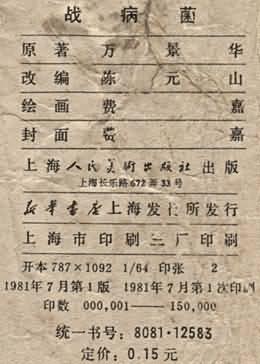 战病菌
原著 万景华
改编 陈元山
绘画 费嘉
封面 费嘉
上海人民美术出版社出版
上海长乐路672弄33号
新华书店上海发行所发行
上海市印刷三厂印刷
开本787×1092 1/64 印张 2
1981年7月第1版 1981年7月第1次印刷
印数 000,001——150,000
统一书号：8081·12583
定价：0.15元